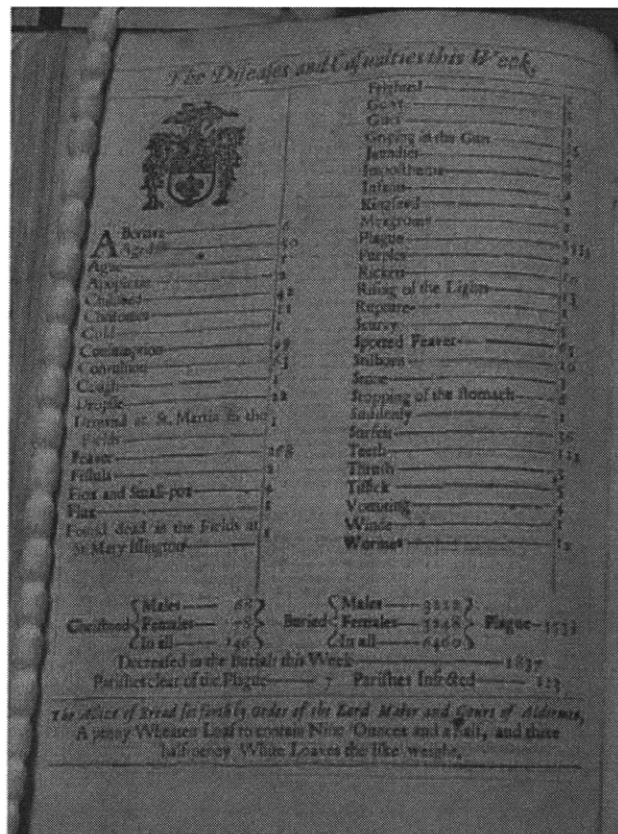 The Diſeaſes and Caſualties this Week,
ABortive
Aged 50
Ague
Apoplexie
Childbed 42
Chriſomes
Cold 1
Conſumption
Convulſion
Cough 1
Dropſie 22
at St. Martin in the
Fields 1
Feaver 268
Fiſtula
Flox and Small-pox
Flux
Found dead in the Fields at
St. Mary Iſlington 1
Frighted
Gowt
Grief
Griping in the Guts
Jaundies
Impoſthume
Infants
Kingſevil
Meagrome
Plague 5533
Purples
Rickets
Riſing of the Lights
Rupture 1
Scurvy
Spotted Feaver 65
Stilborn
Stone
Stopping of the ſtomach
Suddenly 1
Surfeit 36
Teeth
Thruſh
Tiſſick 5
Vomiting 4
Winde 1
Wormes
Chriſtned Males 68 Females 78 In all 146 Buried Males 3212 Females 3248 In all 6460 Plague 5533
Decreaſed in the Burials this Week 1837
Pariſhes clear of the Plague 7 Pariſhes Infected 123
The Aſſize of Bread ſet forth by Order of the Lord Maior and Court of Aldermen,
A penny Wheaten Loaf to contain Nine Ounces and a half, and three
half-penny White Loaves the like weight.